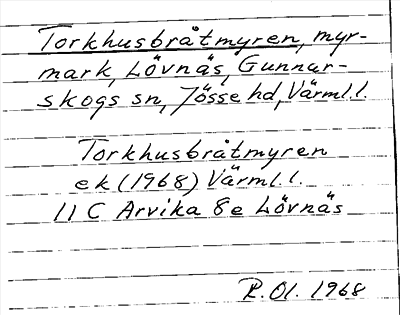 Torkhusbråtmyren, myr-
mark, Lövnäs, Gunnar-
skogs sn, Jösse hd, Värml.l.
Torkhusbråtmyren
ek (1968) Värml.l.
11 C Arvika 8e Lövnäs
R.Ol. 1968